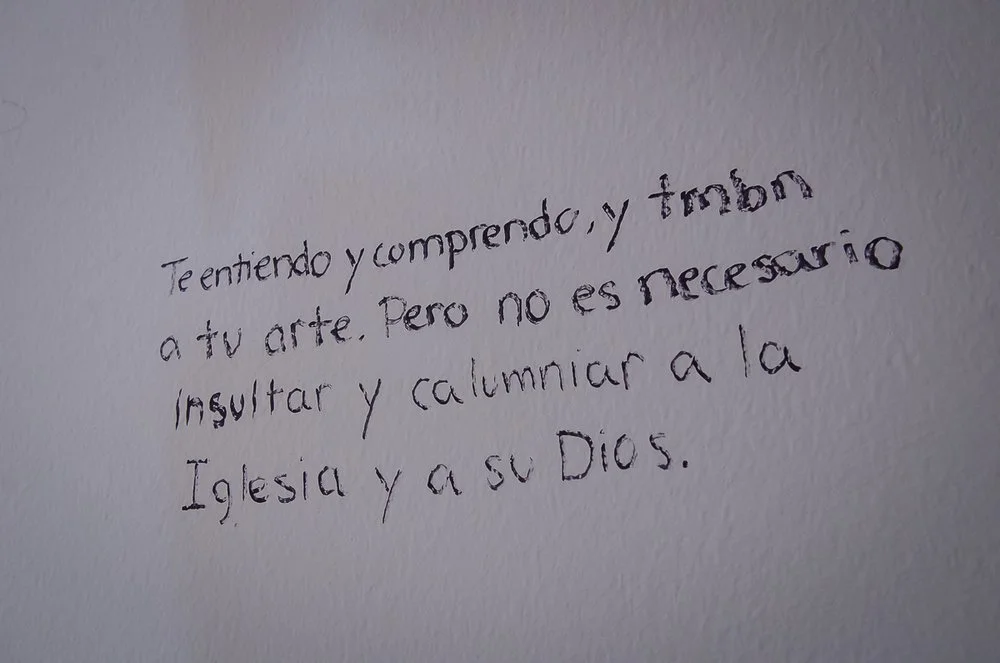 Te entiendo y comprendo, y tmbn
a tu arte. Pero no es necesario
insultar y calumniar a la
Iglesia y a su Dios.